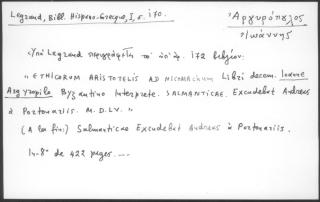 Legrand, Bibl. Hispano-Grecque, I, σ. 170.
Ἀργυρόπουλος
Ἰωάννης
Ὑπὸ Legrand περιγράφεται τὸ ὑπ' ἀρ. 172 βιβλίον:
"ETHICORUM ARISTOTELIS AD NICOMACHUM Libri decem. Ioanne
Argyropilo Byzantino Interprete. SALMANTICAE. Excudebat Andreas
à Portonariis. M.D.LV."
(A la fin) Salmanticae Excudebat Andreas à Portonariis.
In-8° de 422 pages. ---